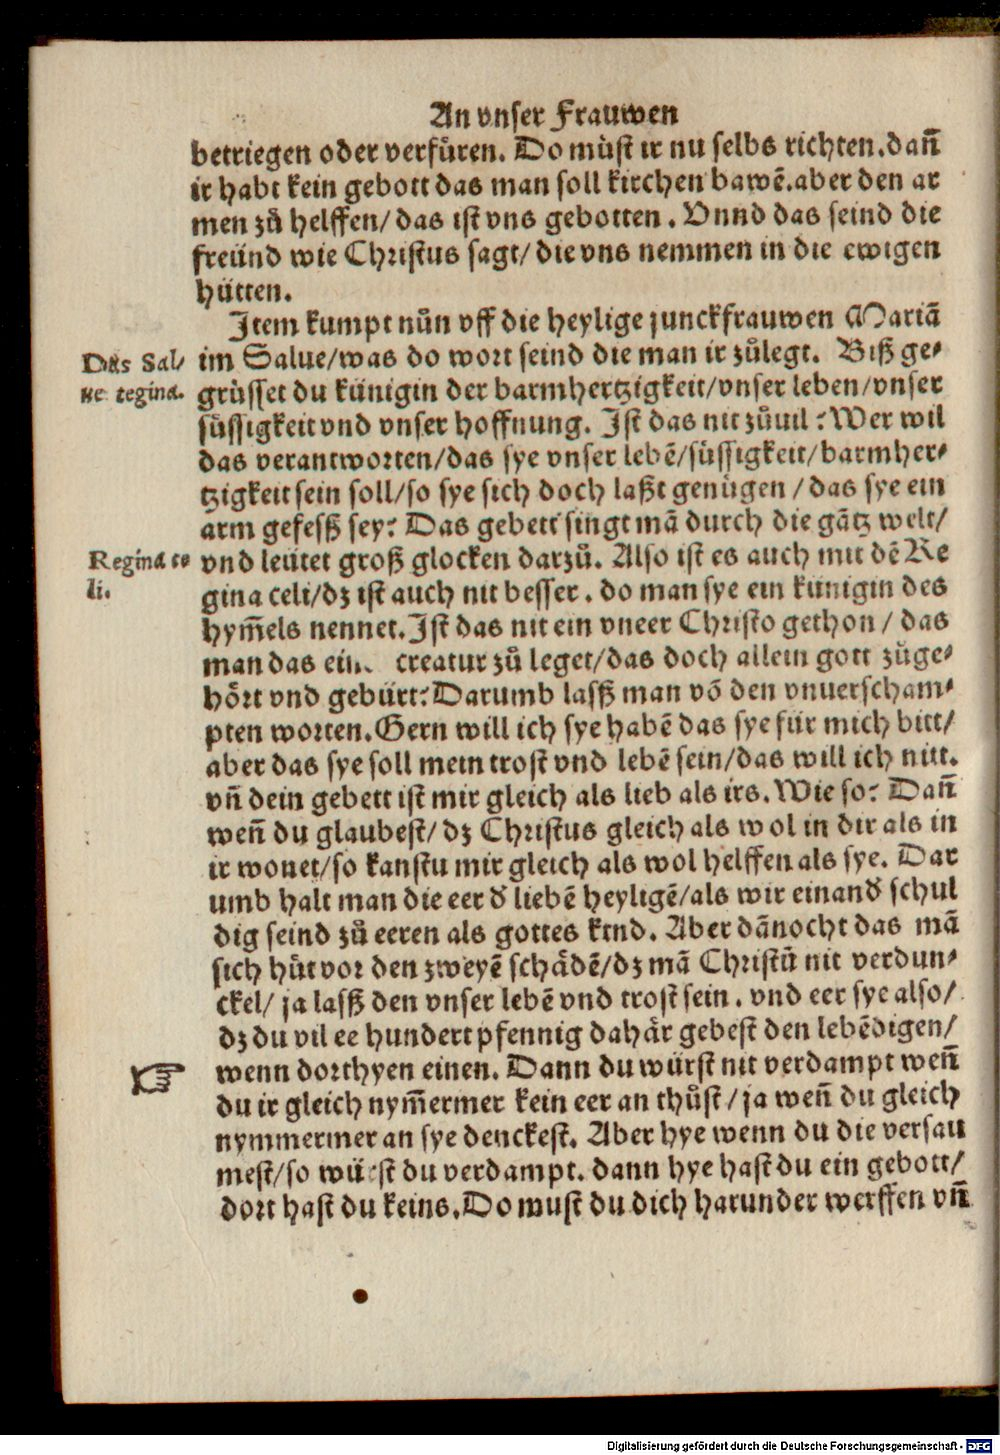 An vnser Frauwen
betriegen oder verfůren. Do můst ir nu selbs richten. dañ
ir habt kein gebott das man soll kirchen bawẽ. aber den ar
men zů helffen/ das ist vns gebotten. Vnnd das seind die
freünd wie Christus sagt/ die vns nemmen in die ewigen
hütten.
Item kumpt nůn vff die heylige junckfrauwen Mariã
Das Sal/
im Salue/ was do wort seind die man ir zůlegt. Biß ge-
ue regina.
grüsset du künigin der barmhertzigkeit/ vnser leben/ vnser
süssigkeit vnd vnser hoffnung. Ist das nit zůuil? Wer wil
das verantworten/ das sye vnser lebẽ/ süssigkeit/ barmher-
tzigkeit sein soll/ so sye sich doch laßt genügen/ das sye ein
arm gefesß sey? Das gebett singt mã durch die gãtz welt/
Regina ce
vnd leütet groß glocken darzů. Also ist es auch mit dẽ Re
li.
gina celi/ dz ist auch nit besser. do man sye ein künigin des
hym̃els nennet. Ist das nit ein vneer Christo gethon/ das
man das ein creatur zů leget/ das doch allein gott zůge-
hört vnd gebürt? Darumb lasß man võ den vnuerscham-
pten worten. Gern will ich sye habẽ das sye für mich bitt/
aber das sye soll mein trost vnd lebẽ sein/ das will ich nitt.
vñ dein gebett ist mir gleich als lieb als irs. Wie so? Dañ
weñ du glaubest/ dz Christus gleich als wol in dir als in
ir wonet/ so kanstu mir gleich als wol helffen als sye. Dar
umb halt man die eer d̕ liebẽ heyligẽ/ als wir einand̕ schul
dig seind zů eeren als gottes kind. Aber dãnocht das mã
sich hüt vor den zweyẽ schädẽ/ dz mã Christũ nit verdun-
ckel/ ja lasß den vnser lebẽ vnd trost sein. vnd eer sye also/
dz du vil ee hundert pfennig dahär gebest den lebẽdigen/
wenn dorthyen einen. Dann du würst nit verdampt weñ
du ir gleich nym̃ermer kein eer an thůst/ ja weñ du gleich
nymmermer an sye denckest. Aber hye wenn du die versau
mest/ so würst du verdampt. dann hye hast du ein gebott/
dort hast du keins. Do must du dich harunder werffen vñ
Digitalisierung gefördert durch die Deutsche Forschungsgemeinschaft - DFG